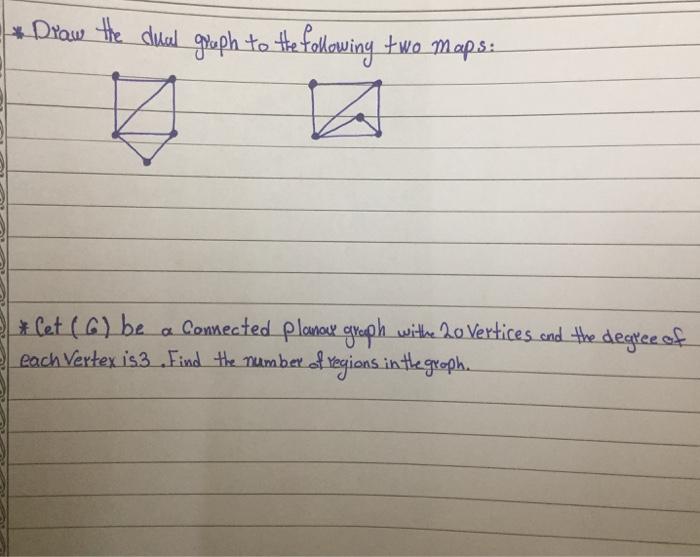 * Draw the dual graph to the following two maps:
* Let (G) be a Connected planar graph withe 20 vertices and the degree of
each Vertex is 3. Find the number of regions in the graph.